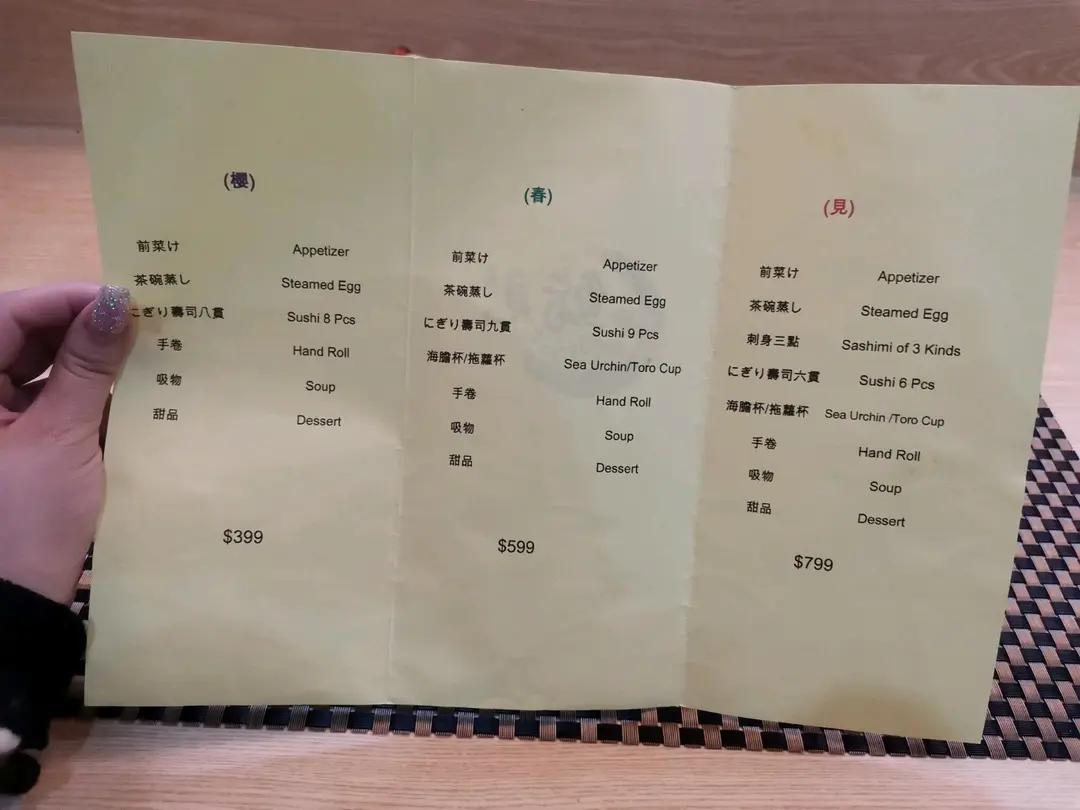 (櫻)
前菜け Appetizer
茶碗蒸し Steamed Egg
にぎり壽司八貫 Sushi 8 Pcs
手卷 Hand Roll
吸物 Soup
甜品 Dessert
$399
(春)
前菜け Appetizer
茶碗蒸し Steamed Egg
にぎり壽司九貫 Sushi 9 Pcs
海膽杯/拖蘿杯 Sea Urchin/Toro Cup
手卷 Hand Roll
吸物 Soup
甜品 Dessert
$599
(見)
前菜け Appetizer
茶碗蒸し Steamed Egg
刺身三點 Sashimi of 3 Kinds
にぎり壽司六貫 Sushi 6 Pcs
海膽杯/拖蘿杯 Sea Urchin /Toro Cup
手卷 Hand Roll
吸物 Soup
甜品 Dessert
$799